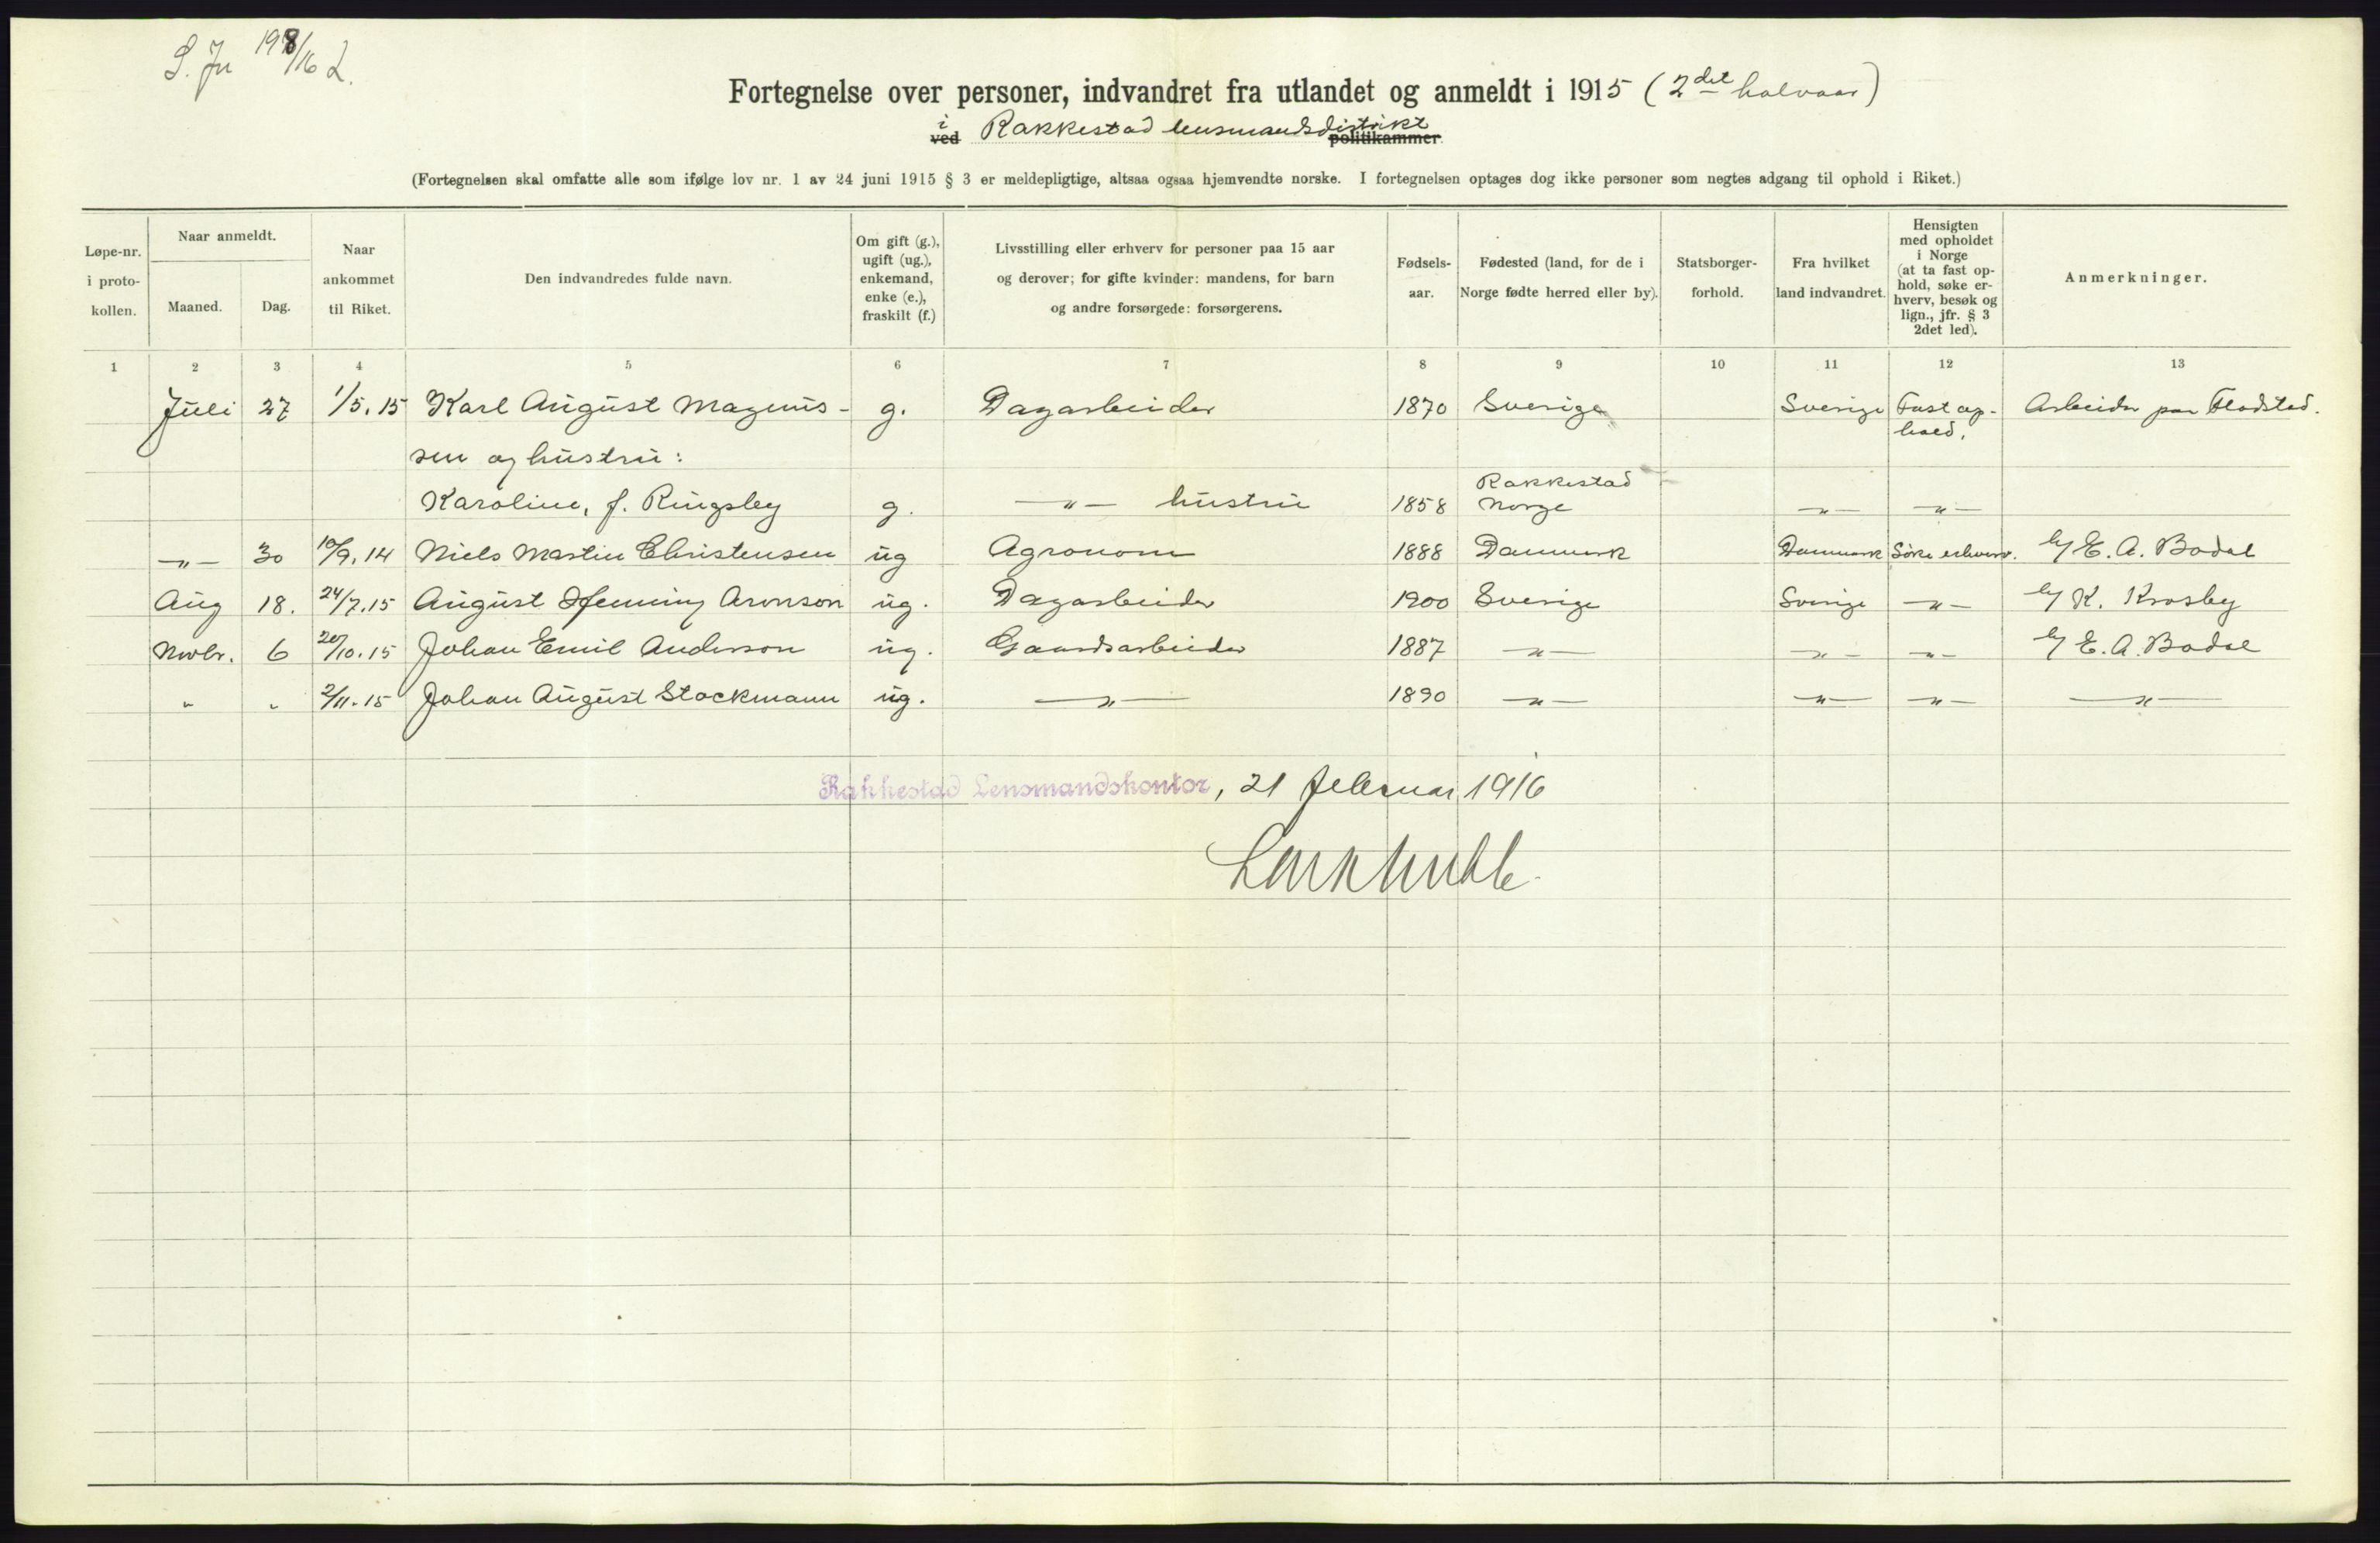 S. Jn 198/16 L.
Fortegnelse over personer, indvandret fra utlandet og anmeldt i 1915 (2det halvaar)
i
ved Rakkestad lensmandsdistrikt politikammer
(Fortegnelsen skal omfatte alle som ifølge lov nr. 1 av 24 juni 1915 § 3 er meldepligtige, altsaa ogsaa hjemvendte norske. I fortegnelsen optages dog ikke personer som negtes adgang til ophold i Riket.)
Løpe-nr.
i proto-
kollen.
Naar anmeldt.
Maaned.
Dag.
Naar
ankommet
til Riket.
Den indvandredes fulde navn.
Om gift (g.),
ugift (ug.),
enkemand,
enke (e.),
fraskilt (f.)
Livsstilling eller erhverv for personer paa 15 aar
og derover; for gifte kvinder: mandens, for barn
og andre forsørgede: forsørgerens.
Fødsels-
aar.
Fødested (land, for de i
Norge fødte herred eller by).
Statsborger-
forhold.
Fra hvilket
land indvandret.
Hensigten
med opholdet
i Norge
(at ta fast op-
hold, søke er-
hverv, besøk og
lign., jfr. § 3
2det led).
Anmerkninger.
1 2 3 4 5 6 7 8 9 10 11 12 13
Juli 27 1/5.15 Karl August Magnus- g. Dagarbeider 1870 Sverige Sverige Fast op- Arbeider paa Flodstad.
hold.
sen og hustru:
Rakkestad
Karoline, f. Ringsby g. —"— hustru 1858 Norge —"— —"—
—"— 30 10/9.14 Niels Martin Christensen ug Agronom 1888 Danmark Danmark Søke erhverv. h/ E. A. Bodal
Aug 18. 24/7.15 August Henning Aronson ug. Dagarbeider 1900 Sverige Sverige —"— h/ K. Krosby
Novbr. 6 20/10.15 Johan Emil Anderson ug. Gaardsarbeider 1887 —"— —"— —"— h/ E. A. Bodal
" " 2/11.15 Johan August Stockmann ug. —"— 1890 —"— —"— —"— —"—
Rakkestad Lensmandskontor, 21 februar 1916